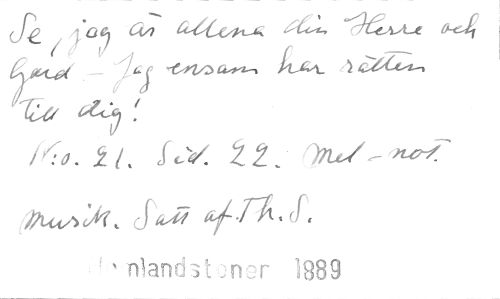 Se, jag är allena din Herre och
Gud – Jag ensam har rätten
till dig!
N:o. 21. Sid. 22. Mel-not.
musik. Satt af Th. S.
nlandstoner 1889